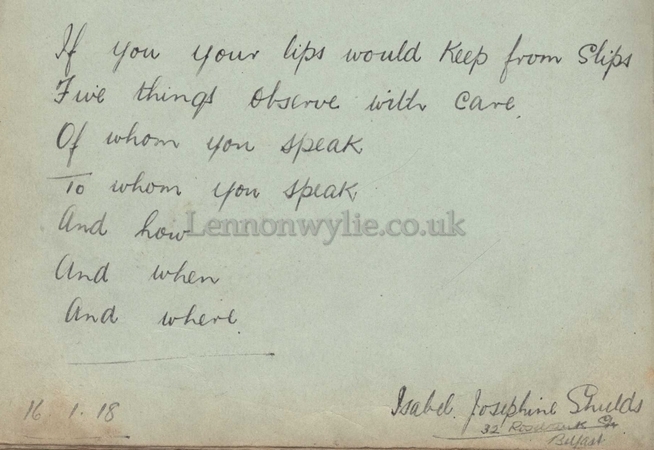 If you your lips would Keep from Slips
Five things observe with care.
Of whom you speak
To whom you speak
And how
Lennonwylie.co.uk
And when
And where.
16 1.18
Isabel Josephine Shields
32
Belfast